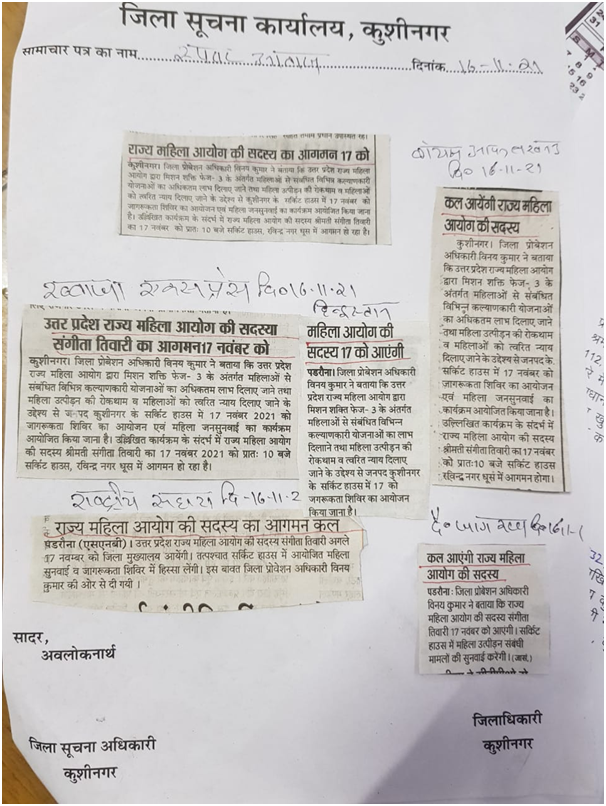 जिला सूचना कार्यालय, कुशीनगर
सामाचार पत्र का नाम
दिनांक 16-11-21
राज्य महिला आयोग की सदस्य का आगमन 17 को
कुशीनगर। जिला प्रोबेशन अधिकारी विनय कुमार ने बताया कि उत्तर प्रदेश राज्य महिला
आयोग द्वारा मिशन शक्ति फेज- 3 के अंतर्गत महिलाओं से संबंधित विभिन्न कल्याणकारी
योजनाओं का अधिकतम लाभ दिलाए जाने तथा महिला उत्पीड़न की रोकथाम व महिलाओं
को त्वरित न्याय दिलाए जाने के उद्देश्य से कुशीनगर के सर्किट हाउस में 17 नवंबर को
जागरूकता शिविर का आयोजन एवं महिला जनसुनवाई का कार्यक्रम आयोजित किया जाना
है। उल्लिखित कार्यक्रम के संदर्भ में राज्य महिला आयोग की सदस्य श्रीमती संगीता तिवारी
का 17 नवंबर को प्रातः 10 बजे सर्किट हाउस, रविन्द्र नगर धूस में आगमन हो रहा है।
दि० 16-11-21
कल आयेंगी राज्य महिला
आयोग की सदस्य
कुशीनगर। जिला प्रोबेशन
अधिकारी विनय कुमार ने बताया
कि उत्तर प्रदेश राज्य महिला आयोग
द्वारा मिशन शक्ति फेज- 3 के
अंतर्गत महिलाओं से संबंधित
विभिन्न कल्याणकारी योजनाओं
का अधिकतम लाभ दिलाए जाने
तथा महिला उत्पीड़न की रोकथाम
व महिलाओं को त्वरित न्याय
दिलाए जाने के उद्देश्य से जनपद के
सर्किट हाउस में 17 नवंबर को
जागरूकता शिविर का आयोजन
एवं महिला जनसुनवाई का
कार्यक्रम आयोजित किया जाना है।
उल्लिखित कार्यक्रम के संदर्भ में
राज्य महिला आयोग की सदस्य
श्रीमती संगीता तिवारी का 17 नवंबर
को प्रातः 10 बजे सर्किट हाउस,
रविन्द्र नगर धूसे में आगमन होगा।
एक्सप्रेस दि० 16-11-21
उत्तर प्रदेश राज्य महिला आयोग की सदस्या
संगीता तिवारी का आगमन17 नवंबर को
कुशीनगर। जिला प्रोबेशन अधिकारी विनय कुमार ने बताया कि उत्तर प्रदेश
राज्य महिला आयोग द्वारा मिशन शक्ति फेज- 3 के अंतर्गत महिलाओं से
संबंधित विभन्न कल्याणकारी योजनाओं का अधिकतम लाभ दिलाए जाने तथा
महिला उत्पीड़न की रोकथाम व महिलाओं को त्वरित न्याय दिलाए जाने के
उद्देश्य से जनपद कुशीनगर के सर्किट हाउस में 17 नवंबर 2021 को
जागरूकता शिविर का आयोजन एवं महिला जनसुनवाई का कार्यक्रम
आयोजित किया जाना है। उल्लिखित कार्यक्रम के संदर्भ में राज्य महिला आयोग
की सदस्य श्रीमती संगीता तिवारी का 17 नवंबर 2021 को प्रातः 10 बजे
सर्किट हाउस, रविन्द्र नगर धूस में आगमन हो रहा है।
हिन्दुस्तान
महिला आयोग की
सदस्य 17 को आएंगी
पडरौना। जिला प्रोबेशन अधिकारी
विनय कुमार ने बताया कि उत्तर
प्रदेश राज्य महिला आयोग द्वारा
मिशन शक्ति फेज- 3 के अंतर्गत
महिलाओं से संबंधित विभिन्न
कल्याणकारी योजनाओं का लाभ
दिलाने तथा महिला उत्पीड़न की
रोकथाम व त्वरित न्याय दिलाए
जाने के उद्देश्य से जनपद कुशीनगर
के सर्किट हाउस में 17 को
जागरूकता शिविर का आयोजन
किया जाना है।
राष्ट्रीय सहारा दि-16-11-2
राज्य महिला आयोग की सदस्य का आगमन कल
पडरौना (एसएनबी)। उत्तर प्रदेश राज्य महिला आयोग की सदस्य संगीता तिवारी अगले
17 नवम्बर को जिला मुख्यालय आयेंगी। तत्पश्चात सर्किट हाउस में आयोजित महिला
सुनवाई व जागरुकता शिविर में हिस्सा लेंगी। इस बावत जिला प्रोवेशन अधिकारी विनय
कुमार की ओर से दी गयी।
दै० जागरण दि० 16-11-
कल आएंगी राज्य महिला
आयोग की सदस्य
पडरौना: जिला प्रोबेशन अधिकारी
विनय कुमार ने बताया कि राज्य
महिला आयोग की सदस्य संगीता
तिवारी 17 नवंबर को आएंगी। सर्किट
हाउस में महिला उत्पीड़न संबंधी
मामलों की सुनवाई करेंगी। (जासं.)
सादर,
अवलोकनार्थ
जिला सूचना अधिकारी
कुशीनगर
जिलाधिकारी
कुशीनगर